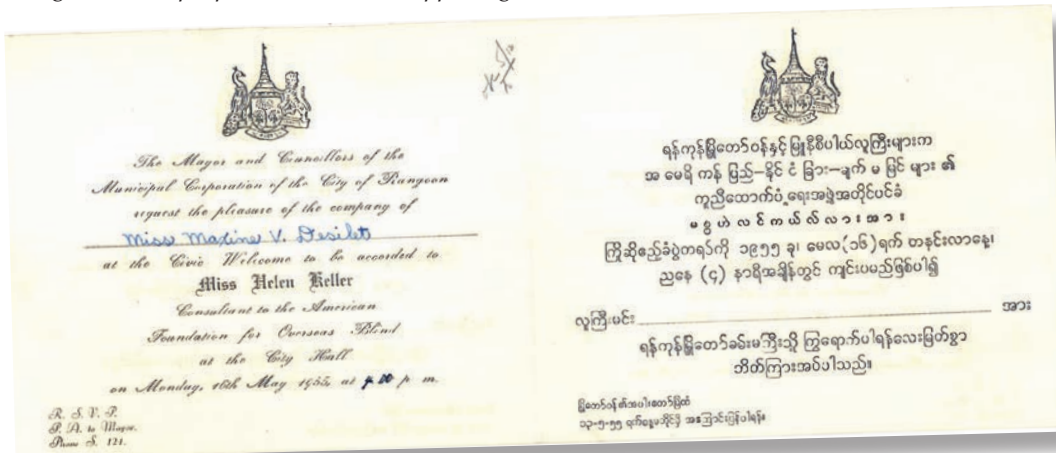 The Mayor and Councillors of the
Municipal Corporation of the City of Rangoon
request the pleasure of the company of
Miss Maxine V. Desilets
at the Civic Welcome to be accorded to
Miss Helen Keller
Consultant to the American
Foundation for Overseas Blind
at the City Hall
on Monday, 16th May 1955, at p. m.
R. S. V. P.
P. A. to Mayor.
Phone S. 121.
ရန်ကုန်မြို့တော်ဝန်နှင့် မြူနီစီပါယ်လူကြီးများက
အမေရိကန်ပြည်–နိုင်ငံခြား–မျက်မမြင်များ၏
ကူညီထောက်ပံ့ရေးအဖွဲ့အတိုင်ပင်ခံ
မစ္စဟဲလင်ကယ်လ်လားအား
ကြိုဆိုဧည့်ခံပွဲတရပ်ကို ၁၉၅၅ ခု၊ မေလ(၁၆)ရက် တနင်းလာနေ့၊
ညနေ (၄) နာရီအချိန်တွင် ကျင်းပမည်ဖြစ်ပါ၍
လူကြီးမင်း အား
ရန်ကုန်မြို့တော်ခန်းမကြီးသို့ ကြွရောက်ပါရန်လေးမြတ်စွာ
ဘိတ်ကြားအပ်ပါသည်။
မြို့တော်ဝန်၏အပါးတော်မြဲထံ
၁၃-၅-၅၅ ရက်နေ့မတိုင်မှီ အကြောင်းပြန်ပါရန်။